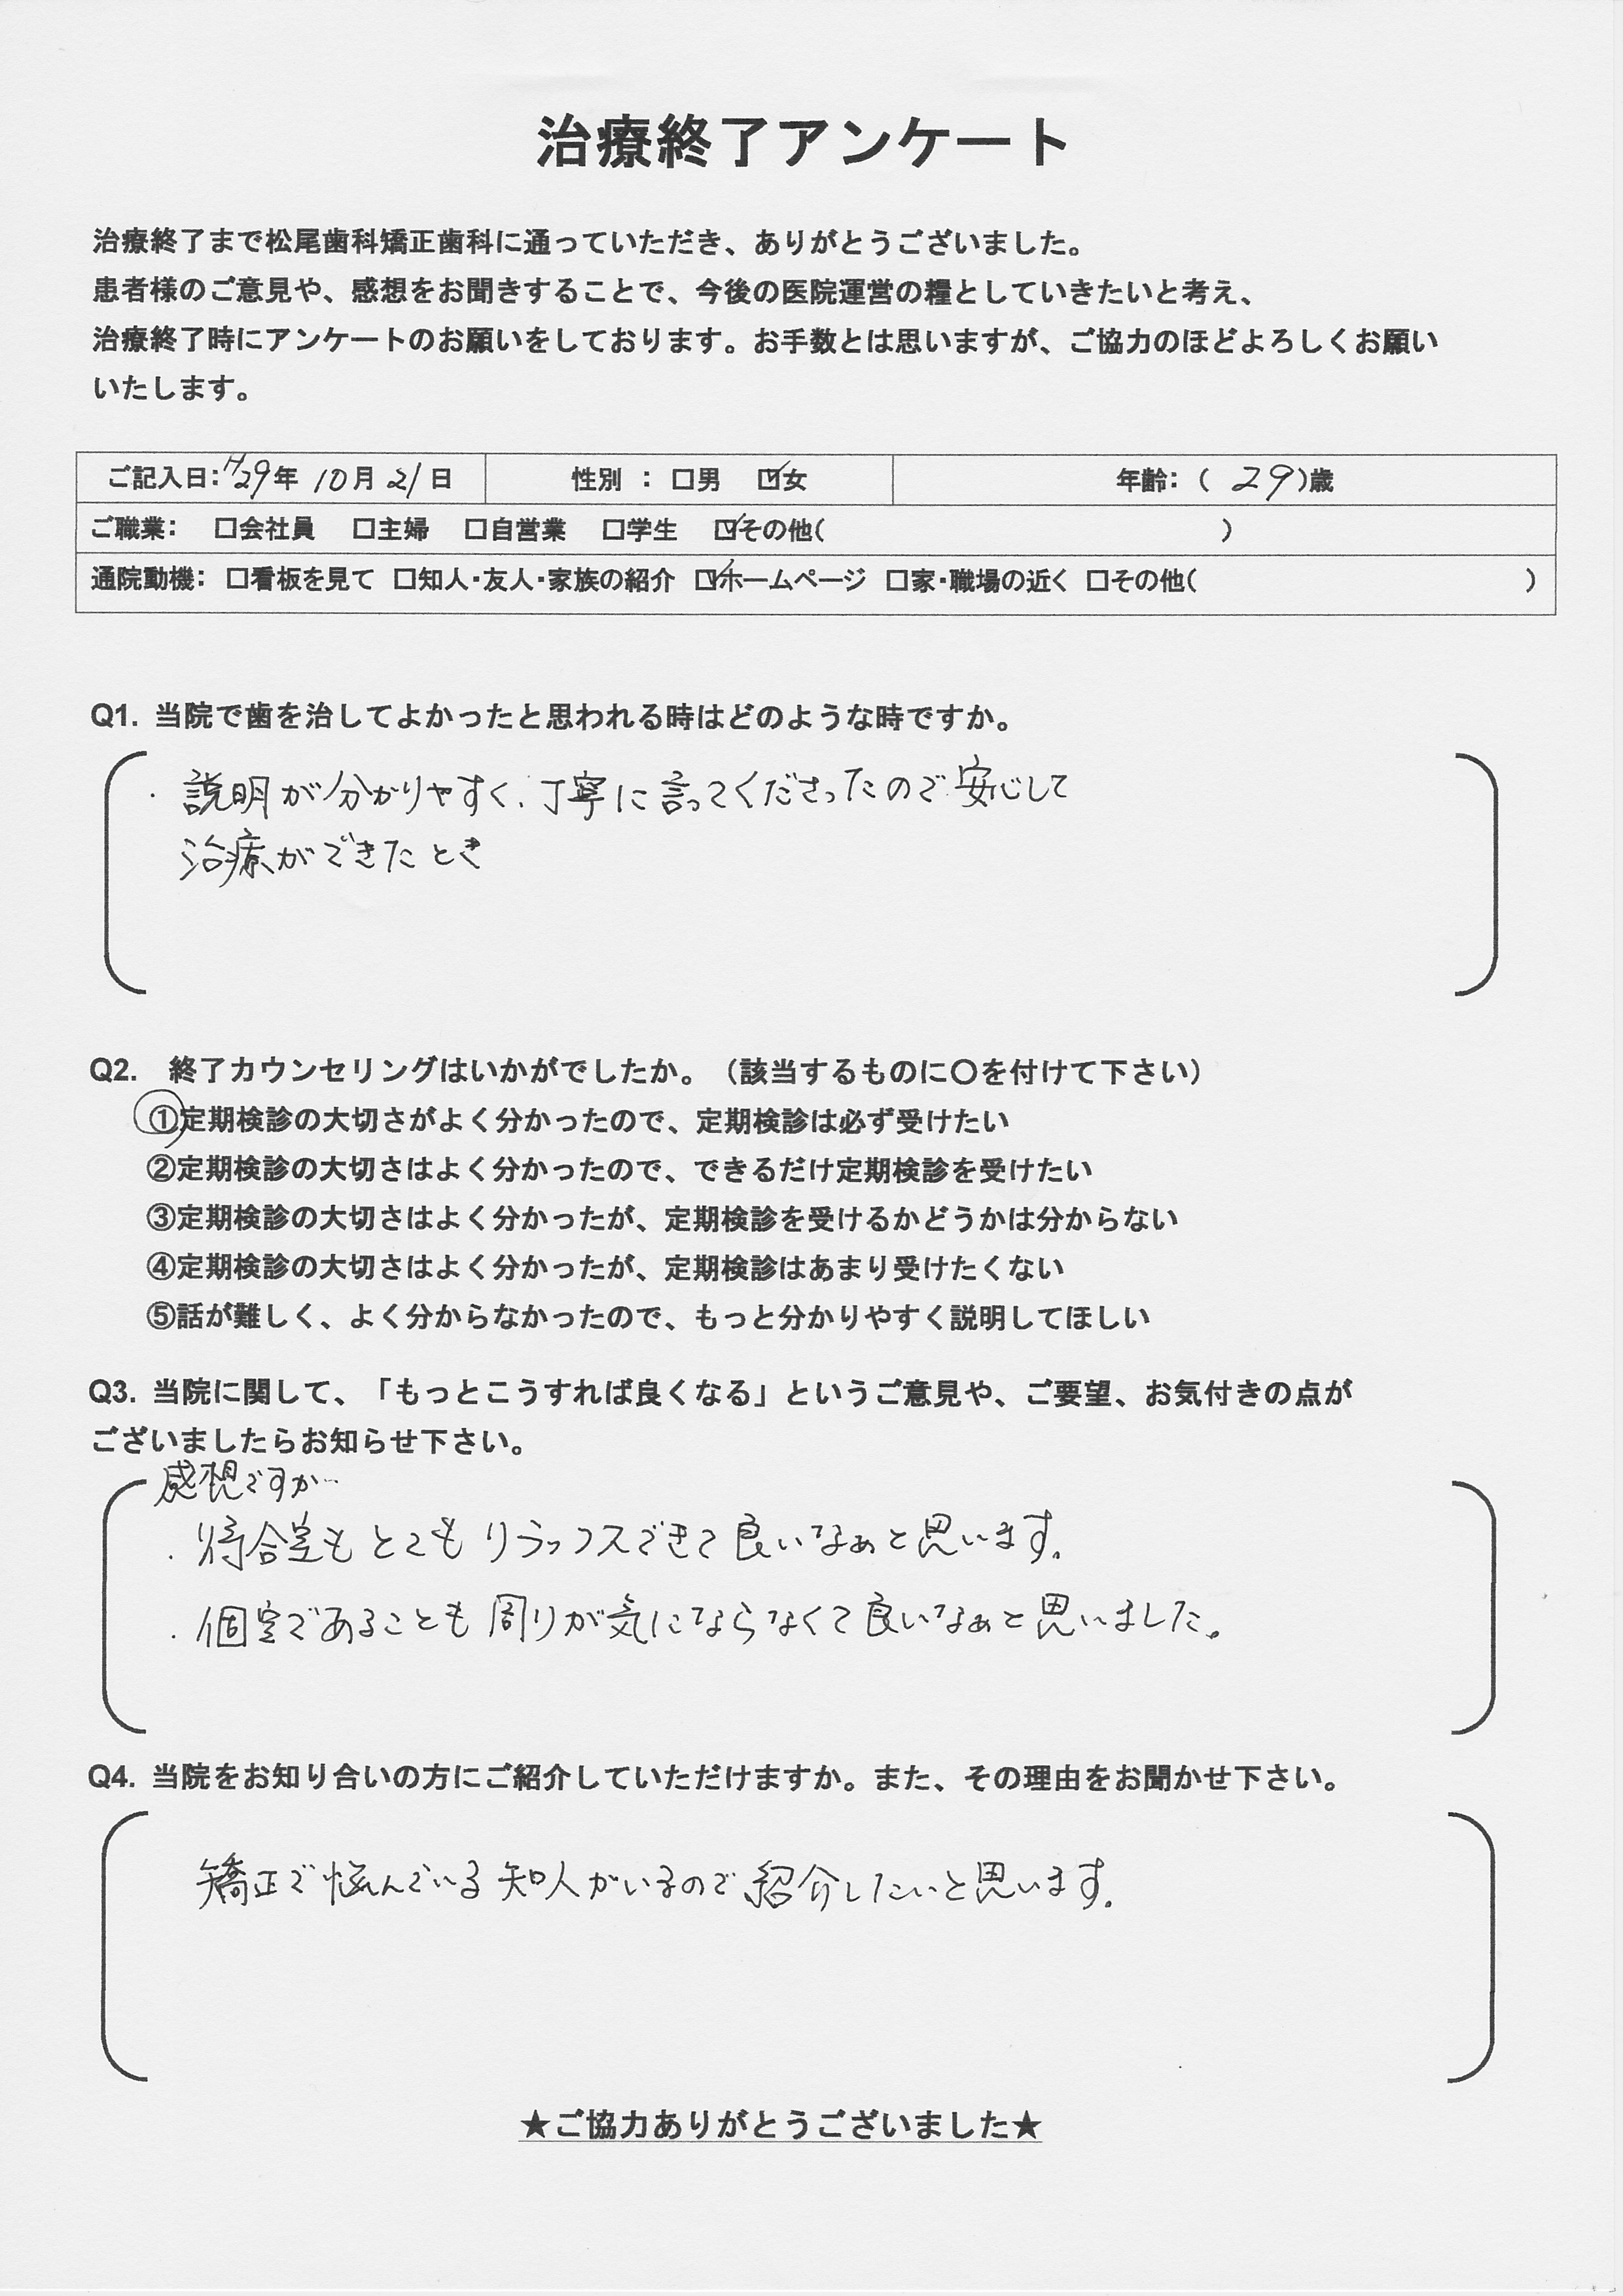 治療終了アンケート
治療終了まで松尾歯科矯正歯科に通っていただき、ありがとうございました。
患者様のご意見や、感想をお聞きすることで、今後の医院運営の糧としていきたいと考え、
治療終了時にアンケートのお願いをしております。お手数とは思いますが、ご協力のほどよろしくお願い
いたします。
ご記入日：H29年 10月 21日 性別 ： □男 ☑女 年齢：（ 29 ）歳
ご職業： □会社員 □主婦 □自営業 □学生 ☑その他（ ）
通院動機： □看板を見て □知人・友人・家族の紹介 ☑ホームページ □家・職場の近く □その他（ ）
Q1. 当院で歯を治してよかったと思われる時はどのような時ですか。
・説明が分かりやすく、丁寧に言ってくださったので安心して
治療ができたとき
Q2. 終了カウンセリングはいかがでしたか。（該当するものに〇を付けて下さい）
①定期検診の大切さがよく分かったので、定期検診は必ず受けたい
②定期検診の大切さはよく分かったので、できるだけ定期検診を受けたい
③定期検診の大切さはよく分かったが、定期検診を受けるかどうかは分からない
④定期検診の大切さはよく分かったが、定期検診はあまり受けたくない
⑤話が難しく、よく分からなかったので、もっと分かりやすく説明してほしい
Q3. 当院に関して、「もっとこうすれば良くなる」というご意見や、ご要望、お気付きの点が
ございましたらお知らせ下さい。
感想ですが…
・待合室もとてもリラックスできて良いなぁと思います。
・個室であることも周りが気にならなくて良いなぁと思いました。
Q4. 当院をお知り合いの方にご紹介していただけますか。また、その理由をお聞かせ下さい。
矯正で悩んでいる知人がいるので紹介したいと思います。
★ご協力ありがとうございました★